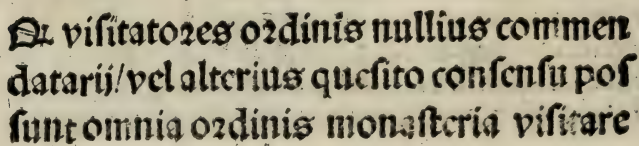 Qꝛ viſitatoꝛes oꝛdinis nullius commen
datarij/vel alterius queſito conſenſu poſ
ſunt omnia oꝛdinis monaſteria viſitare